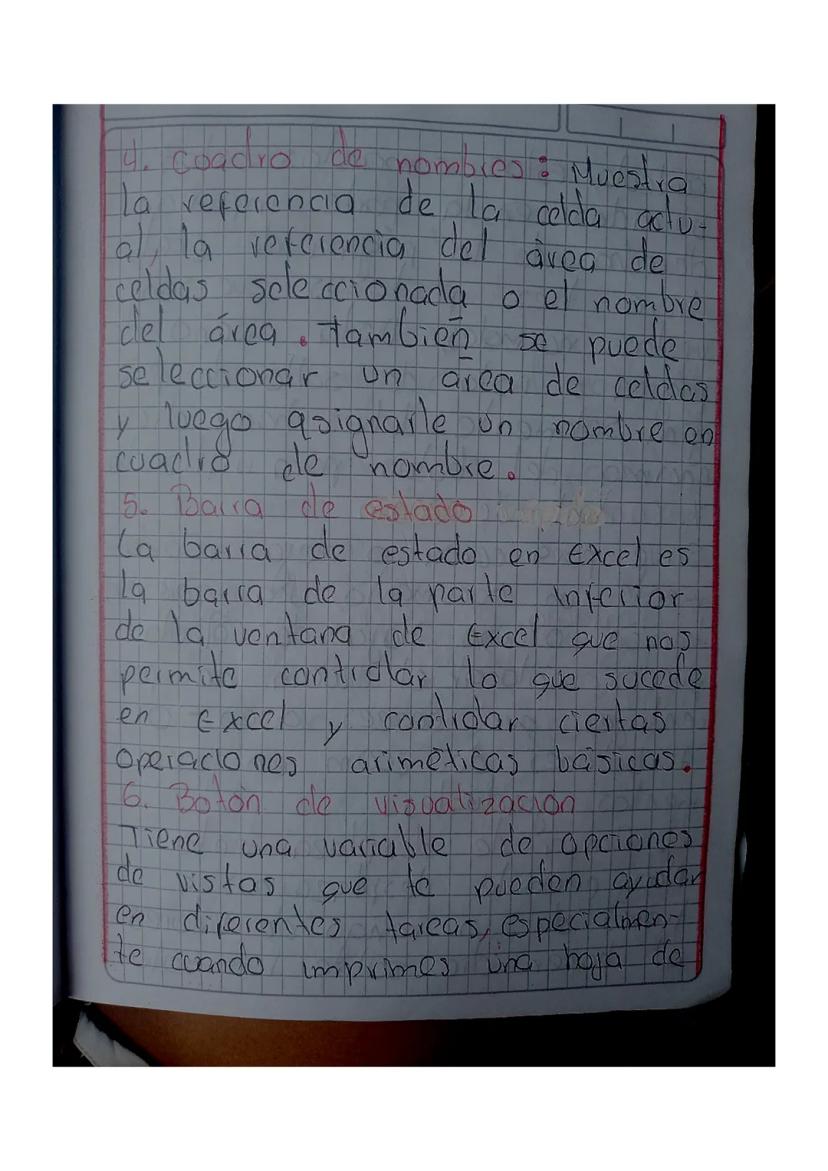 4. Cuadro de nombres: Muestra
la referencia de la celda actu-
al, la referencia del área de
celdas seleccionada o el nombre
del área. también se puede
seleccionar un área de celdas
y luego asignarle un nombre en
cuadro de nombre.
5. Barra de estado
La barra de estado en Excel es
la barra de la parte inferior
de la ventana de Excel que nos
permite controlar lo que sucede
en Excel y controlar ciertas
operaciones ariméticas básicas.
6. Botón de visualización
Tiene una variable de opciones
de vistas que te pueden ayudar
en diferentes tareas, especialmen-
te cuando imprimes una hoja de